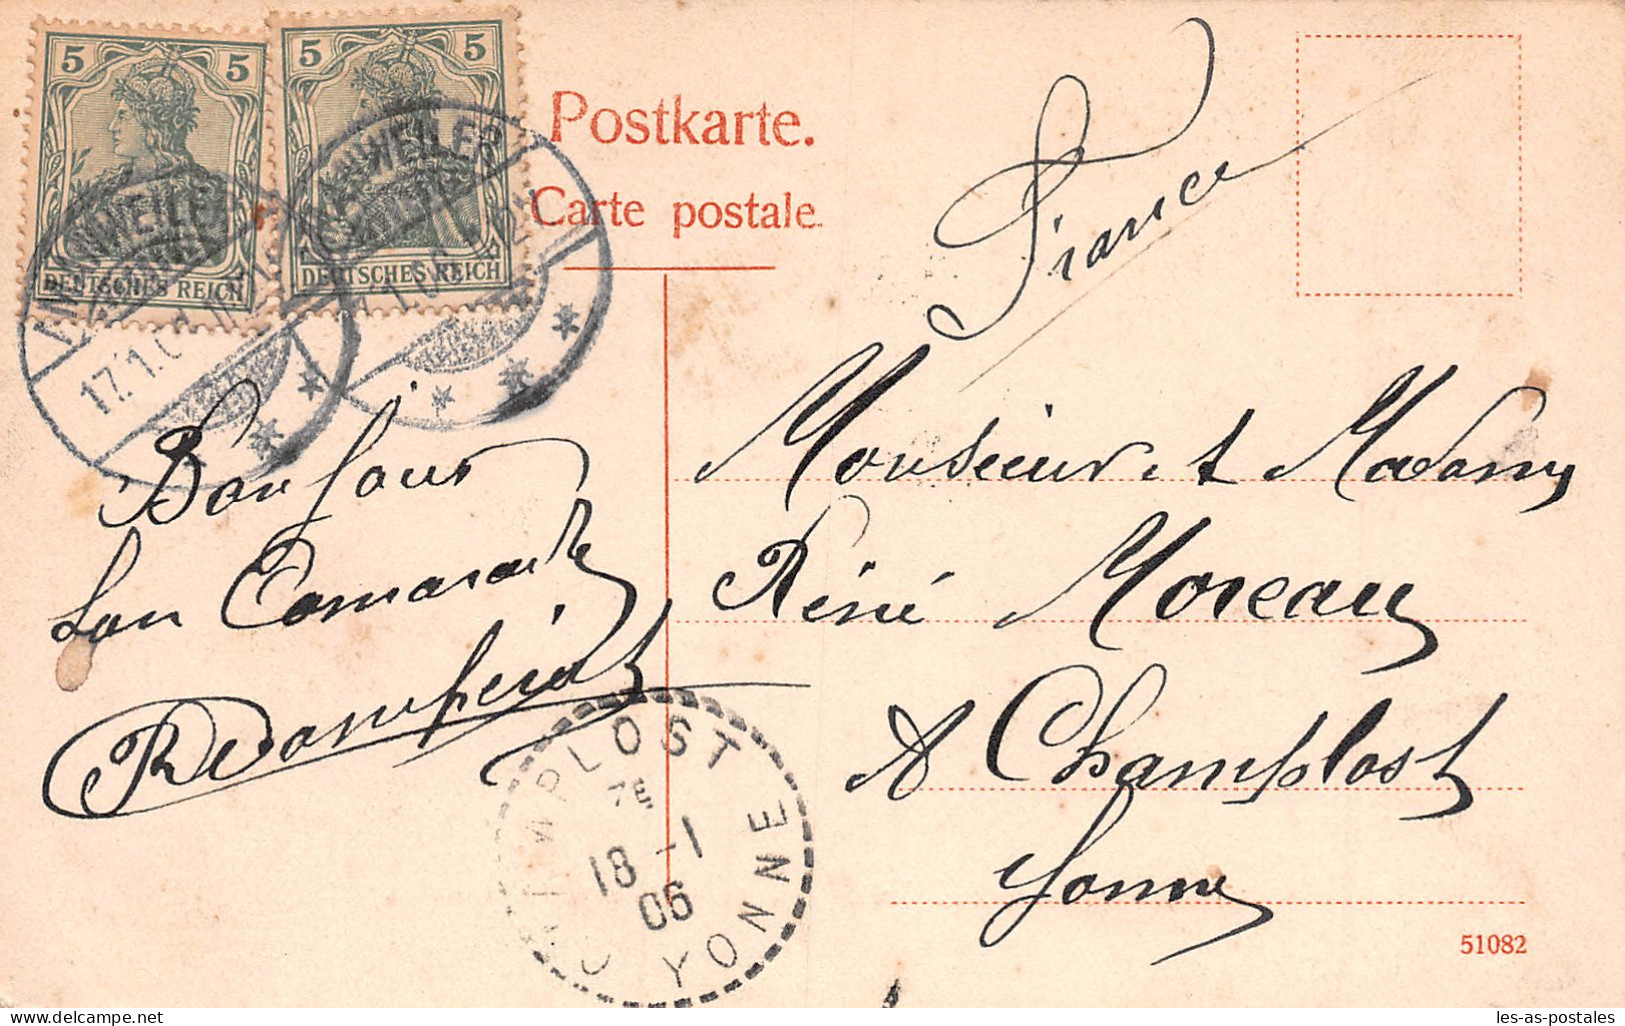 5 5
DEUTSCHES REICH
5 5
DEUTSCHES REICH
17.1.0
Postkarte.
Carte postale.
France
Bonjour
son Camarade
Monsieur et Madame
Réné Moreau
A Champlost
Yonne
CHAMPLOST
7E
18 -1
06
YONNE
51082
delcampe.net
les-as-postales